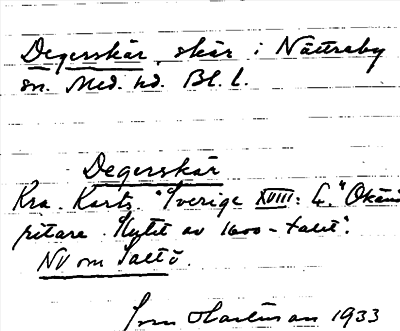 Degerskär, skär i Nättraby
sn. Med. hd. Bl. l.
Degerskär
Kra. Kart. "Sverige XVIII: 4." Okänd
ritare. Slutet av 1600-talet".
NV om Saltö.
1933